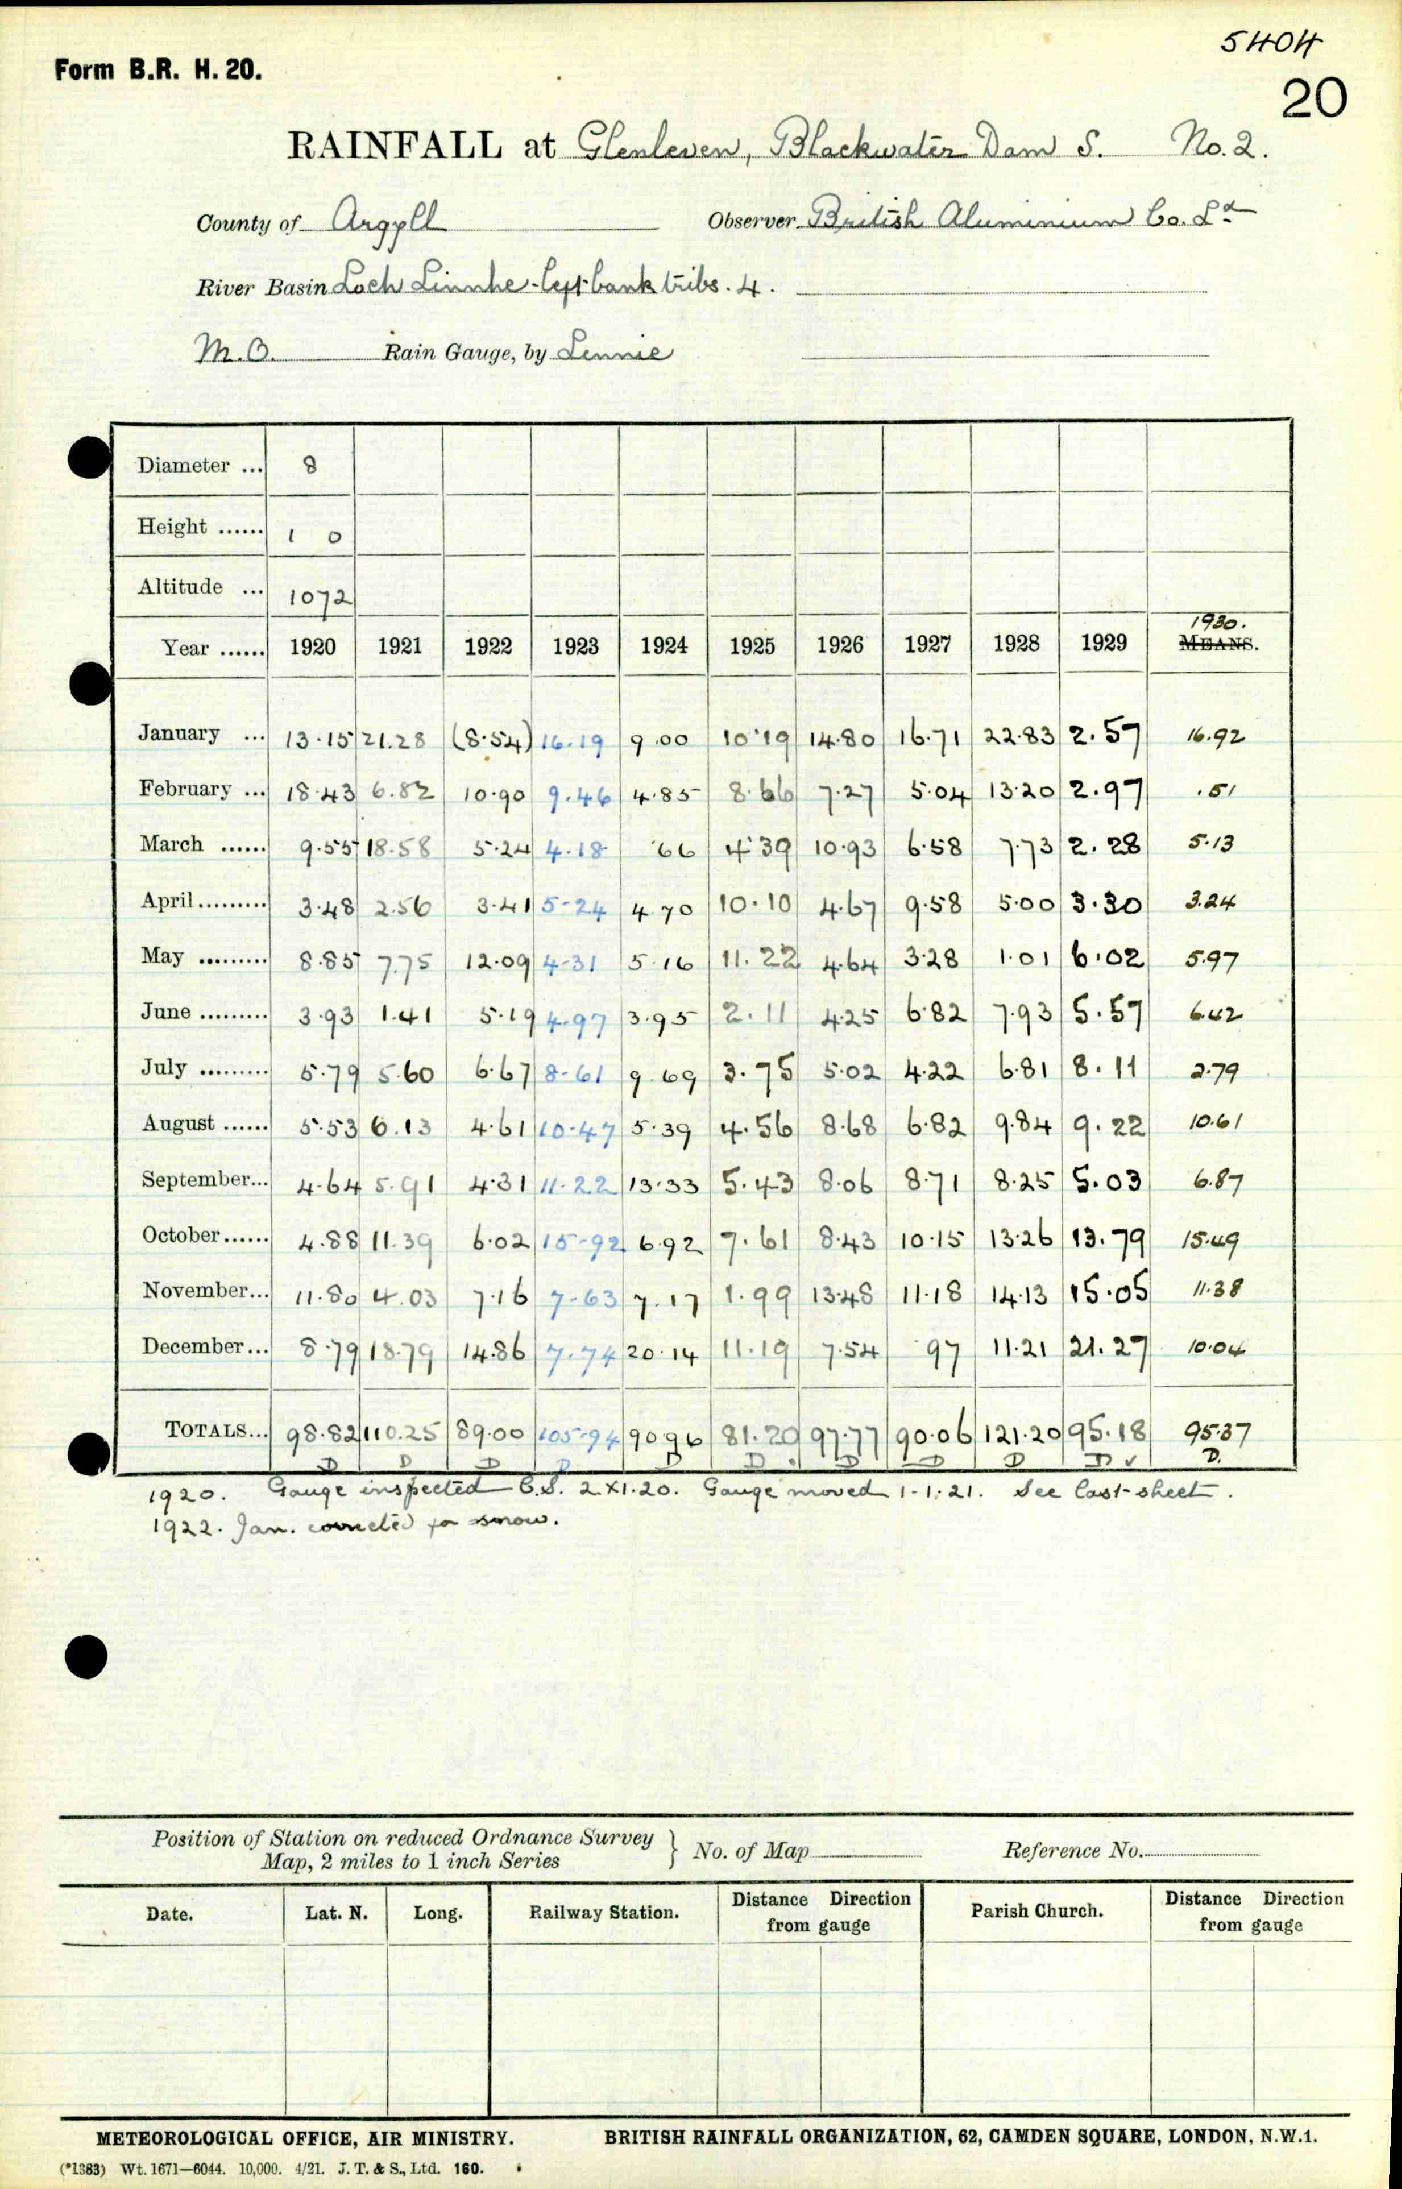 5404
Form B.R. H. 20.
20
RAINFALL at Glenleven, Blackwater Dam S. No. 2.
County of Argyll Observer British Aluminium Co. Ld
River Basin Loch Linnhe - left bank tribs. 4.
M.O. Rain Gauge, by Lennie
Diameter ... 8
Height ...... 1 0
Altitude ... 1072
1930.
Year ...... 1920 1921 1922 1923 1924 1925 1926 1927 1928 1929 MEANS.
January ... 13.15 21.28 (8.54) 16.19 9.00 10.19 14.80 16.71 22.83 2.57 16.92
February ... 18.43 6.82 10.90 9.46 4.85 8.66 7.27 5.04 13.20 2.97 .51
March ...... 9.55 18.58 5.24 4.18 .66 4.39 10.93 6.58 7.73 2.28 5.13
April ......... 3.48 2.56 3.41 5-24 4.70 10.10 4.67 9.58 5.00 3.30 3.24
May ......... 8.85 7.75 12.09 4-31 5.16 11.22 4.64 3.28 1.01 6.02 5.97
June ......... 3.93 1.41 5.19 4-97 3.95 2.11 4.25 6.82 7.93 5.57 6.42
July ......... 5.79 5.60 6.67 8-61 9.69 3.75 5.02 4.22 6.81 8.11 2.79
August ...... 5.53 6.13 4.61 10-47 5.39 4.56 8.68 6.82 9.84 9.22 10.61
September... 4.64 5.91 4.31 11-22 13.33 5.43 8.06 8.71 8.25 5.03 6.87
October...... 4.88 11.39 6.02 15-92 6.92 7.61 8.43 10.15 13.26 13.79 15.49
November... 11.80 4.03 7.16 7-63 7.17 1.99 13.48 11.18 14.13 15.05 11.38
December... 8.79 18.79 14.86 7.74 20.14 11.19 7.54 .97 11.21 21.27 10.04
TOTALS... 98.82 110.25 89.00 105-94 90.96 81.20 97.77 90.06 121.20 95.18 95.37
D D D D D D. D D D D ✓ D.
1920. Gauge inspected C.S. 2.XI.20. Gauge moved 1.1.21. See last sheet.
1922. Jan. corrected for snow.
Position of Station on reduced Ordnance Survey
Map, 2 miles to 1 inch Series } No. of Map Reference No.
Date. Lat. N. Long. Railway Station. Distance Direction from gauge Parish Church. Distance Direction from gauge
METEOROLOGICAL OFFICE, AIR MINISTRY. BRITISH RAINFALL ORGANIZATION, 62, CAMDEN SQUARE, LONDON, N.W.1.
(*1383) Wt. 1671—6044. 10,000. 4/21. J. T. & S., Ltd. 160.